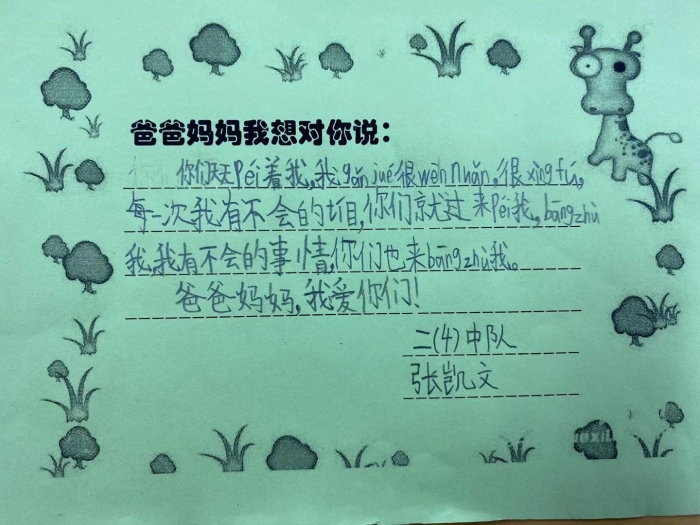 爸爸妈妈我想对你说:
你们天天Péi着我,我gǎn jué很wēn nuǎn,很xìng fú,
每一次我有不会的题目,你们就过来Péi我,bāng zhù
我,我有不会的事情,你们也来bāng zhù我。
爸爸妈妈,我爱你们!
二(4)中队
张凯文